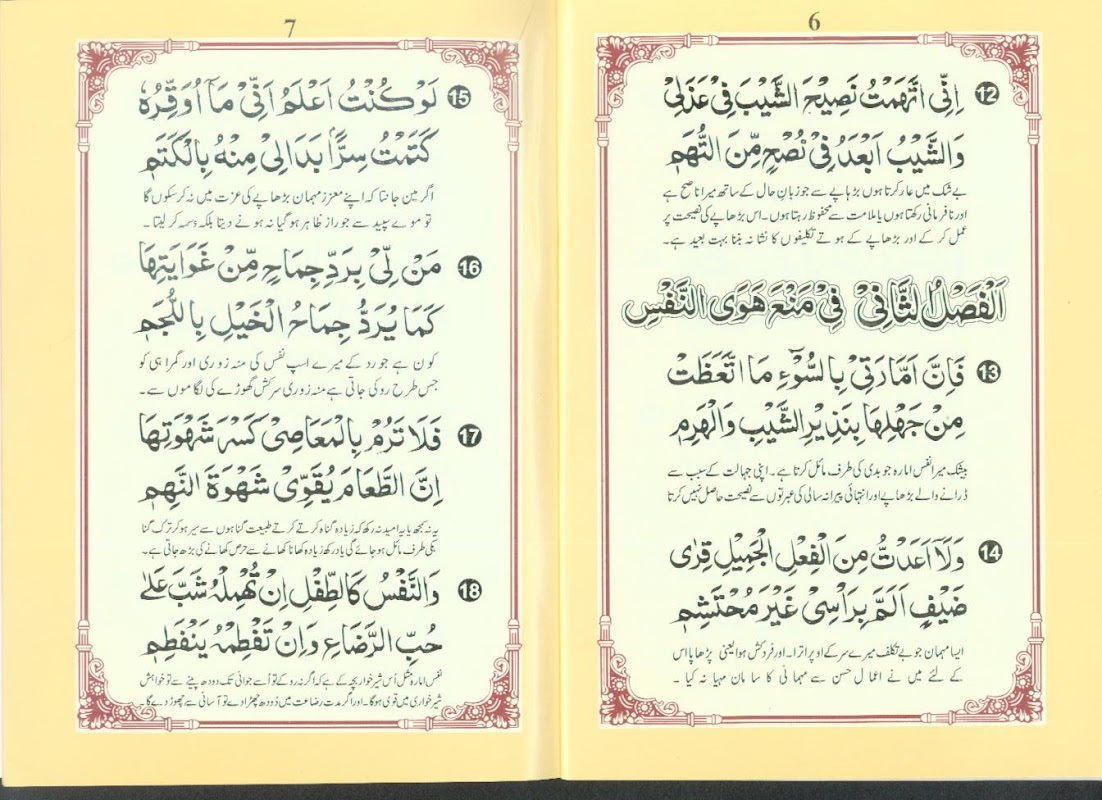 6
12 اِنِّی اتَّهَمْتُ نَصِیْحَ الشَّیْبِ فِیْ عَذَلِیْ
وَالشَّیْبُ اَبْعَدُ فِیْ نُصْحٍ مِّنَ التُّهَمِ
بے شک میں عار کرتا ہوں بڑہاپے سے جو زبانِ حال کے ساتھ میرا ناصح ہے
اور نافرمانی رکھتا ہوں یا ملامت سے محفوظ رہتا ہوں۔ اس بڑھاپے کی نصیحت پر
عمل کر کے اور بڑھاپے کے ہوتے تکلیفوں کا نشانہ بننا بہت بعید ہے۔
اَلْفَصْلُ الثَّانِیْ فِیْ مَنْعِ هَوَی النَّفْسِ
13 فَاِنَّ اَمَّارَتِیْ بِالسُّوْٓءِ مَا اتَّعَظَتْ
مِنْ جَهْلِهَا بِنَذِیْرِ الشَّیْبِ وَالْهَرِمِ
بیشک میرا نفس امارہ جو بدی کی طرف مائل کرتا ہے۔ اپنی جہالت کے سبب سے
ڈرانے والے بڑھاپے اور انتہائی پیرانہ سالی کی عبرتوں سے نصیحت حاصل نہیں کرتا
14 وَلَاۤ اَعَدَّتْ مِنَ الْفِعْلِ الْجَمِیْلِ قِرٰی
ضَیْفٍ اَلَمَّ بِرَاْسِیْ غَیْرَ مُحْتَشِمٖ
ایسا مہمان جو بے تکلف میرے سر کے اوپر اترا۔ اور فردکش ہوا یعنی بڑھاپا اس
کے لئے میں نے اعمال حسن سے مہمانی کا سامان مہیا نہ کیا۔
7
15 لَوْ كُنْتُ اَعْلَمُ اَنِّیْ مَاۤ اُوَقِّرُهٗ
كَتَمْتُ سِرًّا بَدَا لِیْ مِنْهُ بِالْكَتَمِ
اگر مین جانتا کہ اپنے معزز مہمان بڑھاپے کی عزت میں نہ کر سکوں گا
تو موے سپید سے جو راز ظاہر ہو گیا نہ ہونے دیتا بلکہ وسمہ کر لیتا۔
16 مَنْ لِّیْ بِرَدِّ جِمَاحٍ مِّنْ غَوَایَتِهَا
كَمَا یُرَدُّ جِمَاحُ الْخَیْلِ بِاللُّجَمِ
کون ہے جو رد کے میرے اسپ نفس کی منہ زوری اور گمراہی کو
جس طرح روکی جاتی ہے منہ زوری سرکش گھوڑے کی لگاموں سے۔
17 فَلَا تَرُمْ بِالْمَعَاصِیْ كَسْرَ شَهْوَتِهَا
اِنَّ الطَّعَامَ یُقَوِّیْ شَهْوَةَ النَّهِمٖ
یہ نہ سمجھ یا یہ امید نہ رکھ کہ زیادہ گناہ کرتے کرتے طبیعت گناہوں سے سیر ہو کر ترک گنا
کی طرف مائل ہو جائے گی یاد رکھ زیادہ کھانا کھانے سے حرص کھانے کی بڑھ جاتی ہے۔
18 وَالنَّفْسُ كَالطِّفْلِ اِنْ تُهْمِلْهُ شَبَّ عَلٰی
حُبِّ الرَّضَاعِ وَاِنْ تَفْطِمْهُ یَنْفَطِمٖ
نفس امارہ مثل اُس شیر خوار بچہ کے ہے کہ اگر نہ روکے تو اُسے جوانی تک دودھ پینے سے تو خواہش
شیر خواری میں قوی ہوگا۔ اور اگر مدت رضاعت میں دُودھ چھڑا دے تو آسانی سے چھوڑ دے گا۔